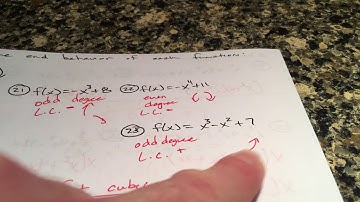 end behavior of each function:
21 f(x)=-x³+8
odd degree
L.C. -
22 f(x)=-x⁴+11
even
degree
L.C. -
23 f(x)=x³-x²+7
odd degree
L.C. +